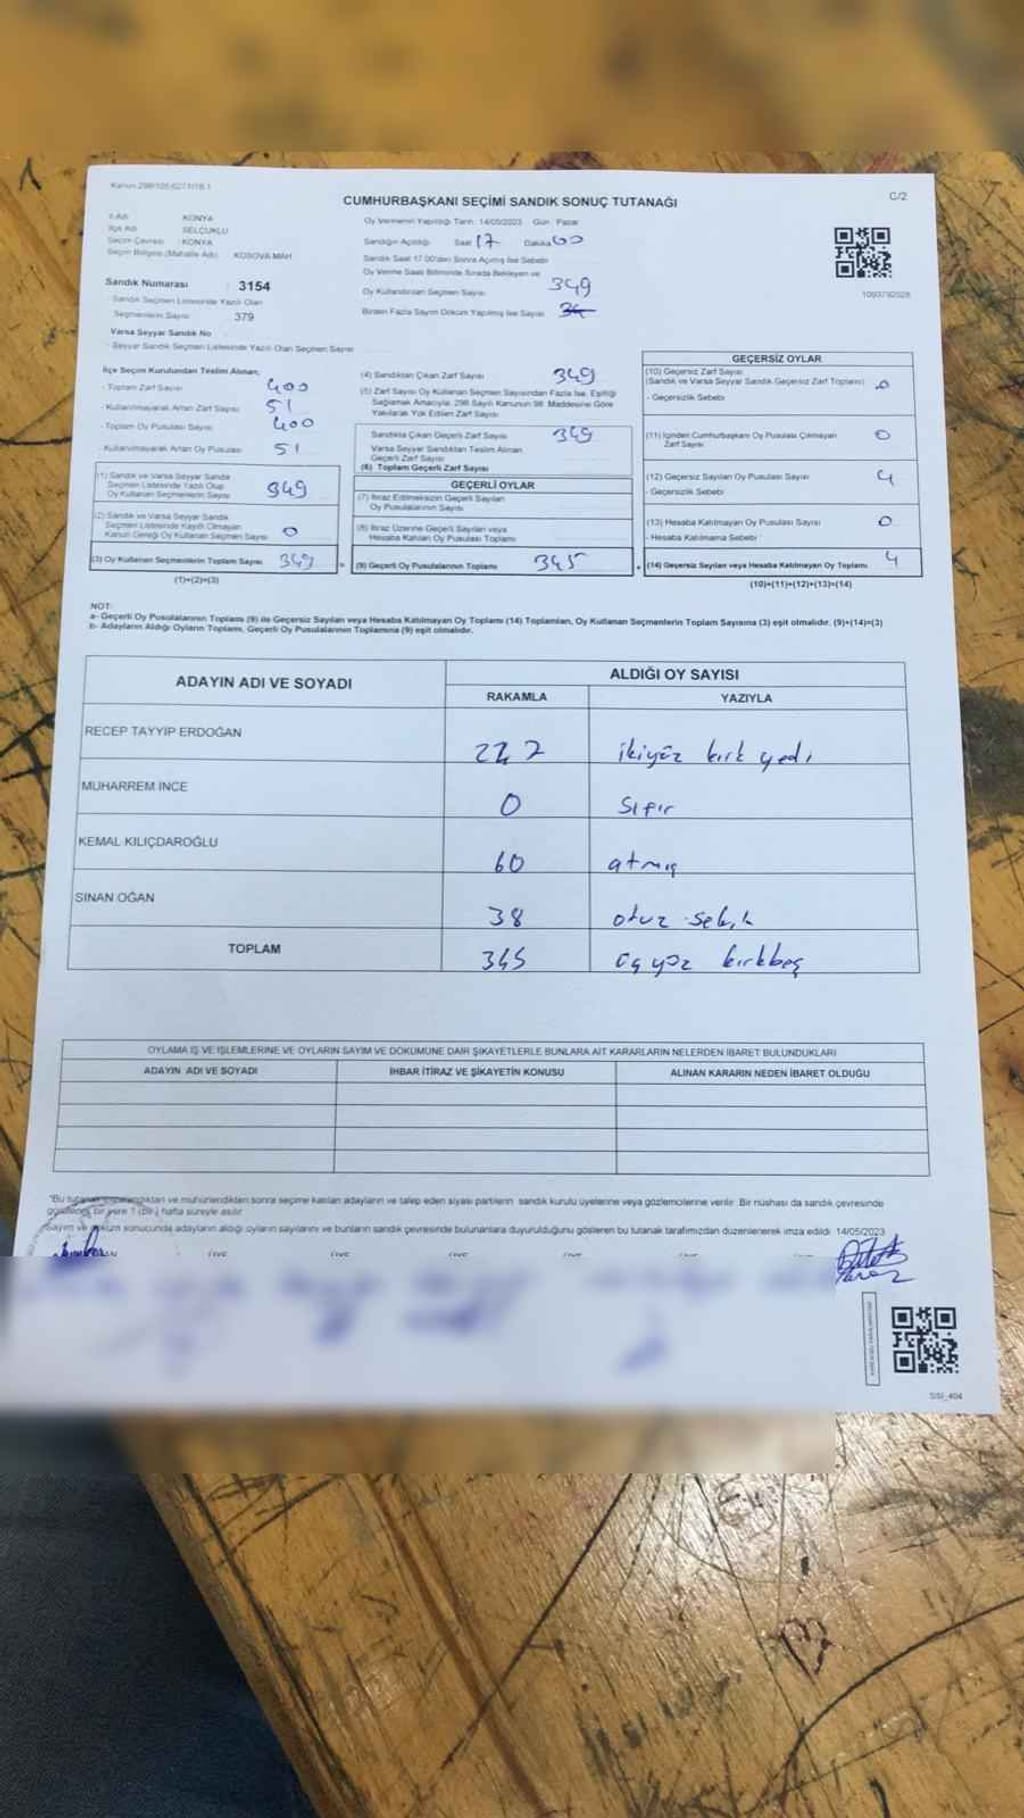 Kanun 298/105,6271/18.1
C/2
CUMHURBAŞKANI SEÇİMİ SANDIK SONUÇ TUTANAĞI
İl Adı KONYA
İlçe Adı SELÇUKLU
Seçim Çevresi KONYA
Seçim Bölgesi (Mahalle Adı) KOSOVA MAH
Sandık Numarası 3154
Sandık Seçmen Listesinde Yazılı Olan
Seçmenlerin Sayısı 379
Varsa Seyyar Sandık No
Seyyar Sandık Seçmen Listesinde Yazılı Olan Seçmen Sayısı
Oy Vermenin Yapıldığı Tarih: 14/05/2023 Gün: Pazar
Sandığın Açıldığı Saat 17 Dakika 00
Sandık Saat 17.00'den Sonra Açılmış İse Sebebi
Oy Verme Saati Bitiminde Sırada Bekleyen ve
Oy Kullandırılan Seçmen Sayısı 349
Birden Fazla Sayım Döküm Yapılmış İse Sayısı
1093792028
İlçe Seçim Kurulundan Teslim Alınan;
- Toplam Zarf Sayısı 400
- Kullanılmayarak Artan Zarf Sayısı 51
- Toplam Oy Pusulası Sayısı 400
- Kullanılmayarak Artan Oy Pusulası 51
(1) Sandık ve Varsa Seyyar Sandık
Seçmen Listesinde Yazılı Olup
Oy Kullanan Seçmenlerin Sayısı 349
(2) Sandık ve Varsa Seyyar Sandık
Seçmen Listesinde Kayıtlı Olmayan
Kanun Gereği Oy Kullanan Seçmen Sayısı 0
(3) Oy Kullanan Seçmenlerin Toplam Sayısı 349
(1)+(2)=(3)
(4) Sandıktan Çıkan Zarf Sayısı 349
(5) Zarf Sayısı Oy Kullanan Seçmen Sayısından Fazla İse, Eşitliği
Sağlamak Amacıyla, 298 Sayılı Kanunun 98. Maddesine Göre
Yakılarak Yok Edilen Zarf Sayısı
Sandıkta Çıkan Geçerli Zarf Sayısı 349
Varsa Seyyar Sandıktan Teslim Alınan
Geçerli Zarf Sayısı
(6) Toplam Geçerli Zarf Sayısı
GEÇERLİ OYLAR
(7) İtiraz Edilmeksizin Geçerli Sayılan
Oy Pusulalarının Sayısı
(8) İtiraz Üzerine Geçerli Sayılan veya
Hesaba Katılan Oy Pusulası Toplamı
= (9) Geçerli Oy Pusulalarının Toplamı 345
GEÇERSİZ OYLAR
(10) Geçersiz Zarf Sayısı
(Sandık ve Varsa Seyyar Sandık Geçersiz Zarf Toplamı) 0
- Geçersizlik Sebebi
(11) İçinden Cumhurbaşkanı Oy Pusulası Çıkmayan
Zarf Sayısı 0
(12) Geçersiz Sayılan Oy Pusulası Sayısı 4
- Geçersizlik Sebebi
(13) Hesaba Katılmayan Oy Pusulası Sayısı 0
- Hesaba Katılmama Sebebi
+ (14) Geçersiz Sayılan veya Hesaba Katılmayan Oy Toplamı 4
(10)+(11)+(12)+(13)=(14)
NOT:
a- Geçerli Oy Pusulalarının Toplamı (9) ile Geçersiz Sayılan veya Hesaba Katılmayan Oy Toplamı (14) Toplamları, Oy Kullanan Seçmenlerin Toplam Sayısına (3) eşit olmalıdır. (9)+(14)=(3)
b- Adayların Aldığı Oyların Toplamı, Geçerli Oy Pusulalarının Toplamına (9) eşit olmalıdır.
ADAYIN ADI VE SOYADI ALDIĞI OY SAYISI
RAKAMLA YAZIYLA
RECEP TAYYIP ERDOĞAN 247 ikiyüz kırk yedi
MUHARREM İNCE 0 Sıfır
KEMAL KILIÇDAROĞLU 60 atmış
SİNAN OĞAN 38 otuz sekiz
TOPLAM 345 üçyüz kırkbeş
OYLAMA İŞ VE İŞLEMLERİNE VE OYLARIN SAYIM VE DÖKÜMÜNE DAİR ŞİKAYETLERLE BUNLARA AİT KARARLARIN NELERDEN İBARET BULUNDUKLARI
ADAYIN ADI VE SOYADI İHBAR İTİRAZ VE ŞİKAYETİN KONUSU ALINAN KARARIN NEDEN İBARET OLDUĞU
"Bu tutanak imzalandıktan ve mühürlendikten sonra seçime katılan adayların ve talep eden siyasi partilerin sandık kurulu üyelerine veya gözlemcilerine verilir. Bir nüshası da sandık çevresinde
görülecek bir yere 1 (bir) hafta süreyle asılır.
Sayım ve döküm sonucunda adayların aldığı oyların sayılarını ve bunların sandık çevresinde bulunanlara duyurulduğunu gösteren bu tutanak tarafımızdan düzenlenerek imza edildi. 14/05/2023
SSI_404